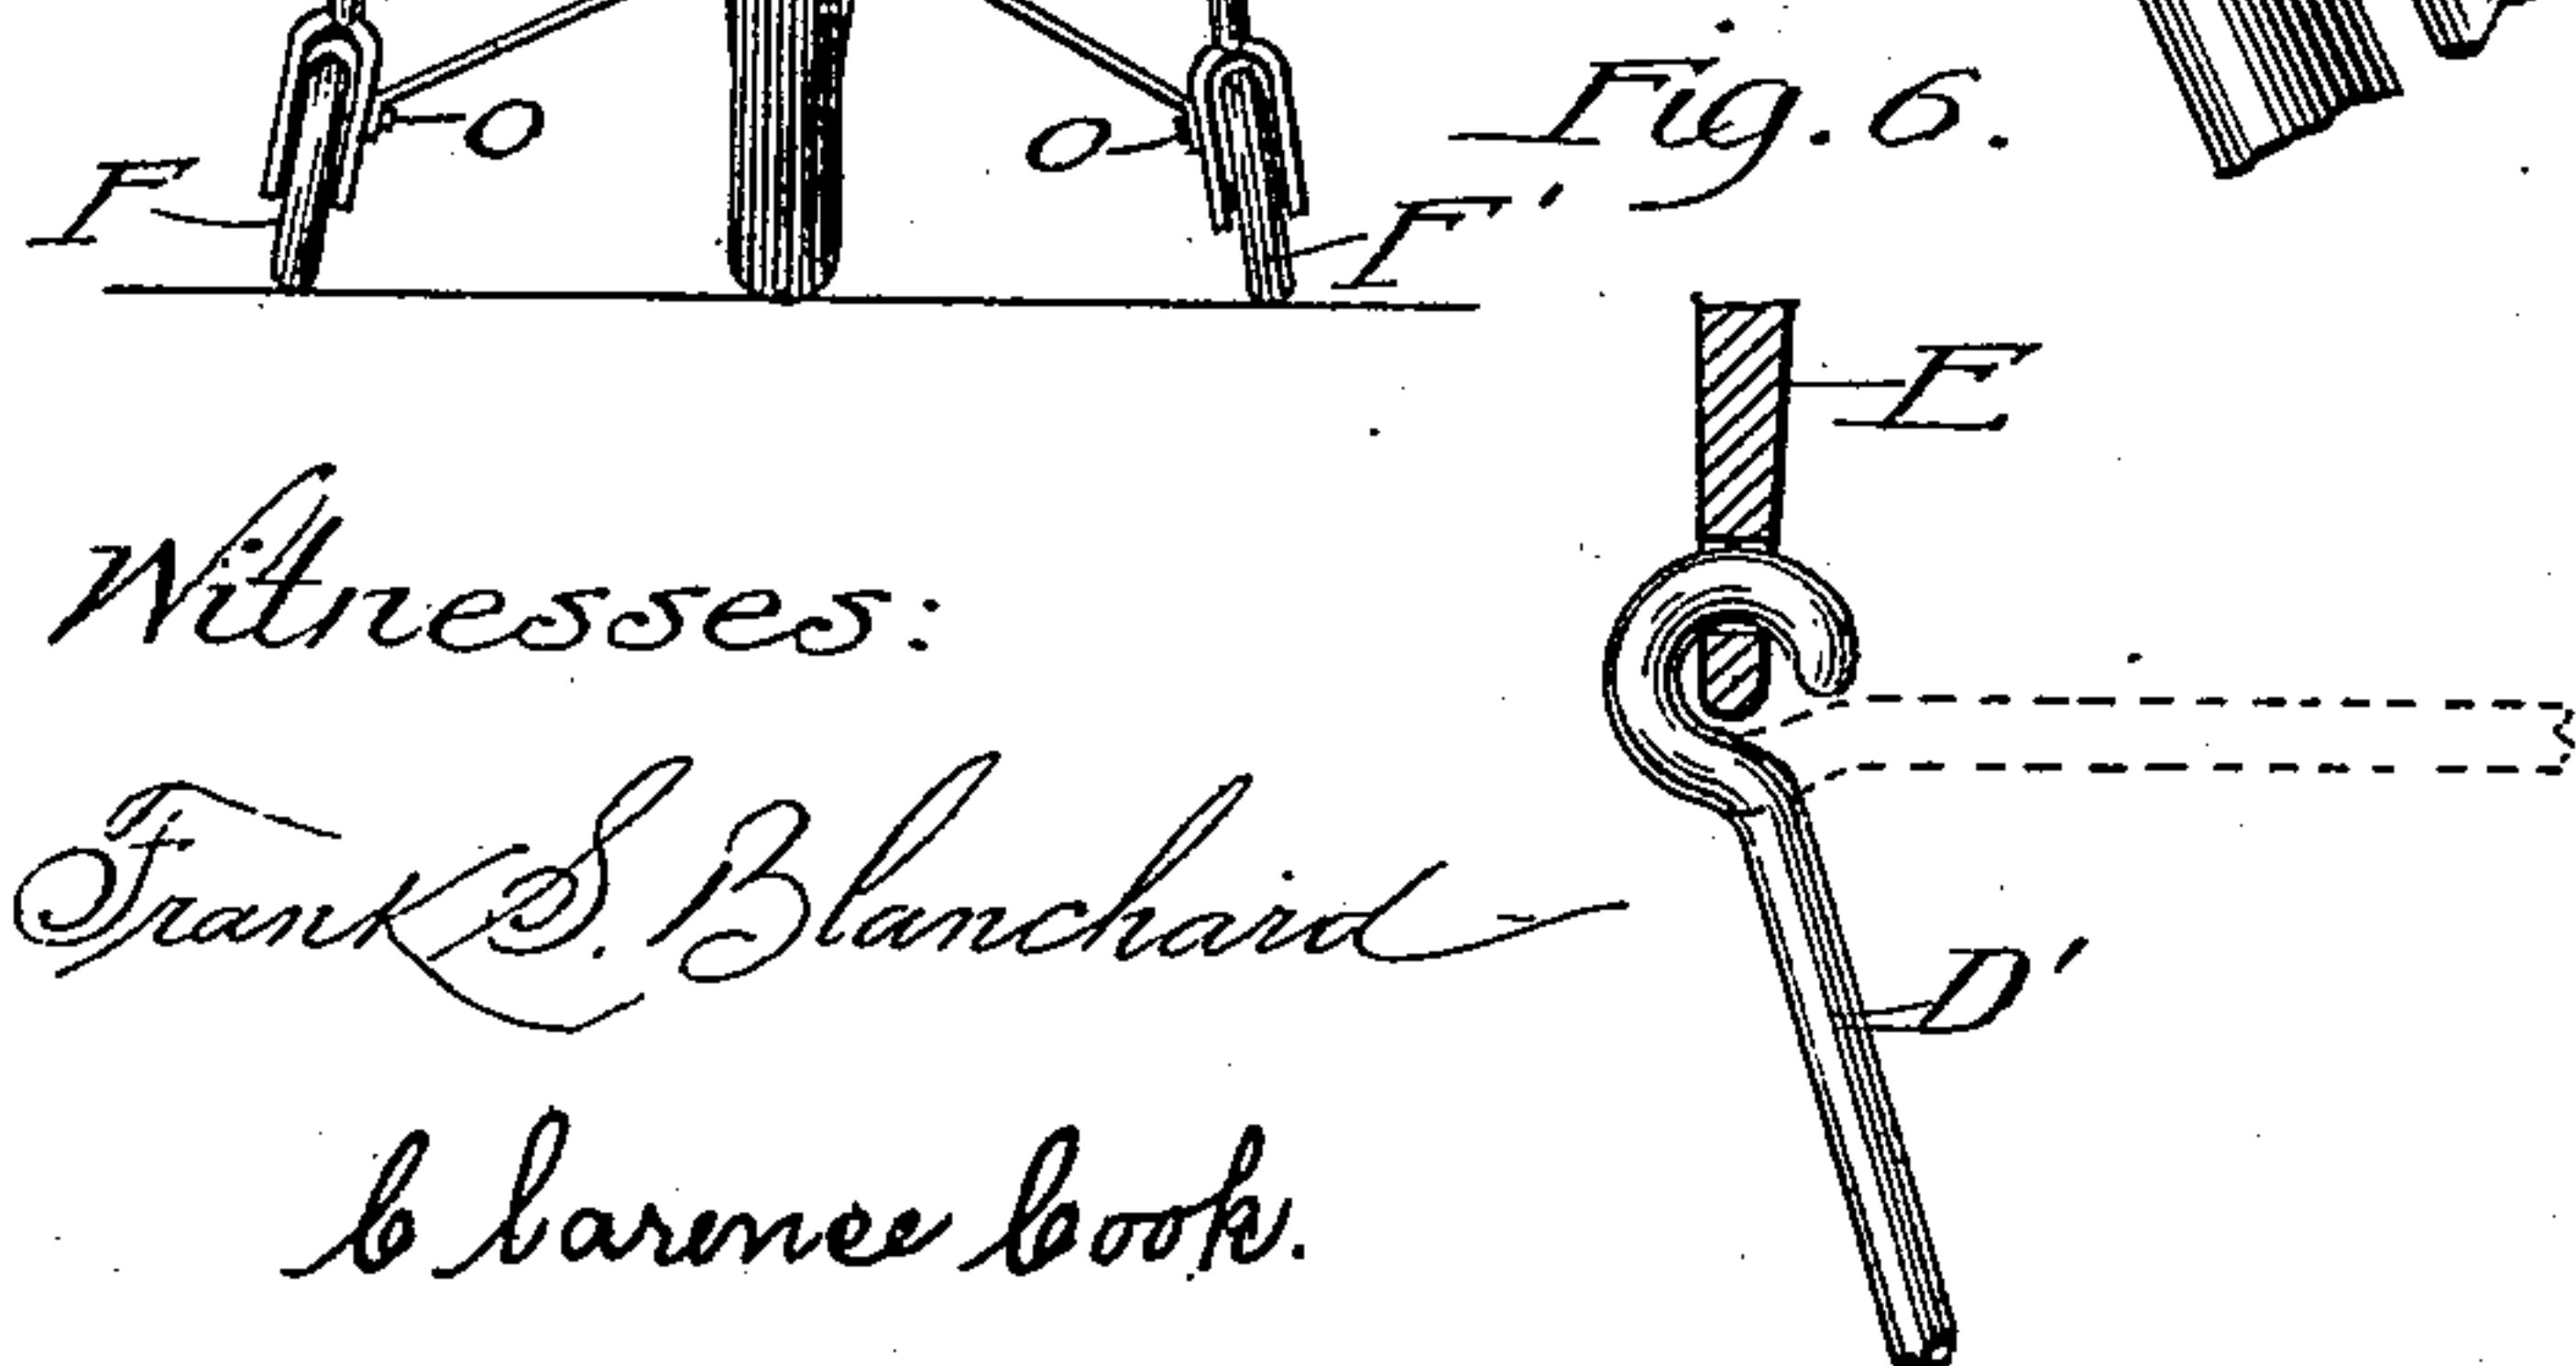 O
O
Fig. 6.
F
F'
E
Witnesses:
Frank S. Blanchard
D'
Clarence Cook.